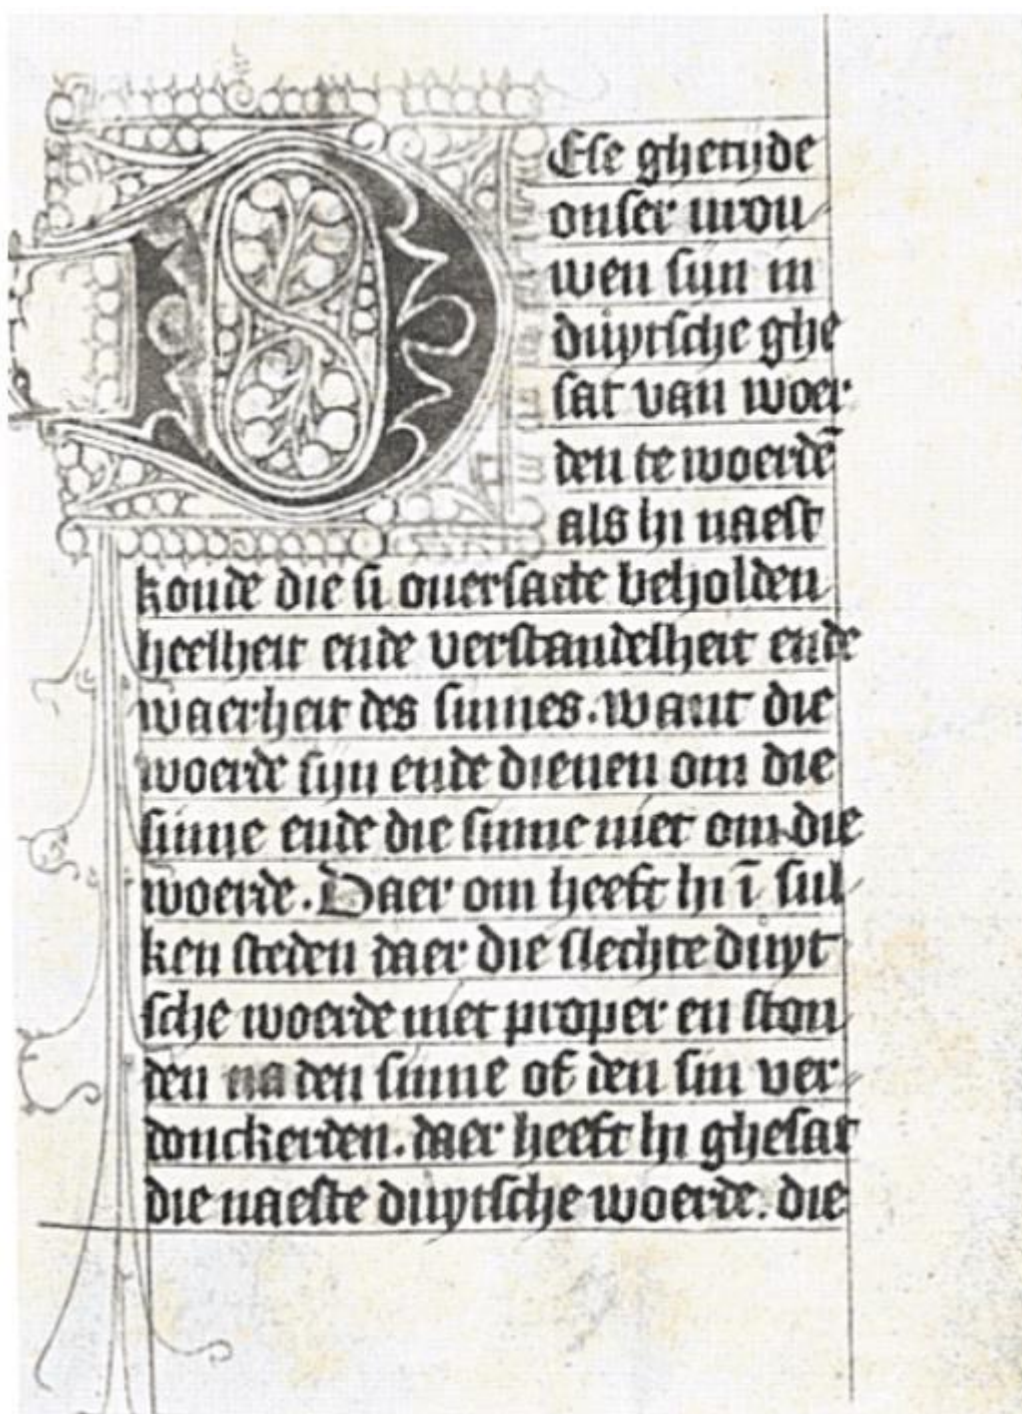 DEse ghetijde
onser vrou
wen sijn in
duytsche ghe
sat van woer
den te woerdē
als hi naest
konde die si ouersaete beholden
heelheit ende verstandelheit ende
waerheit des sinnes. want die
woerde sijn ende dienen om die
sinne ende die sinne niet om die
woerde. Daer om heeft hi ī sul
ken steden daer die slechte duyt
sche woerde niet proper en ston
den na den sinne of den sin ver
donckerden. daer heeft hi ghesat
die naeste duytsche woerde. die